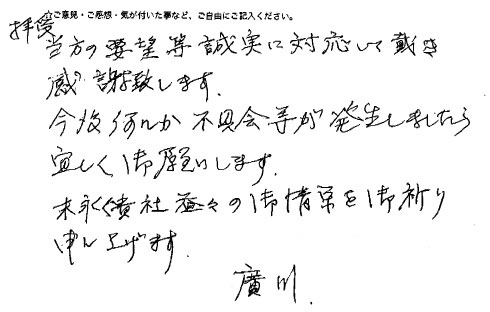 ☆ご意見・ご感想・気が付いた事など、ご自由にご記入ください。
拝受
当方の要望等誠実に対応して戴き
感謝致します.
今後何んか不具会等が発生しましたら
宜しく御願いします.
末永く貴社益々の御情栄を御祈り
申し上げます.
廣川.